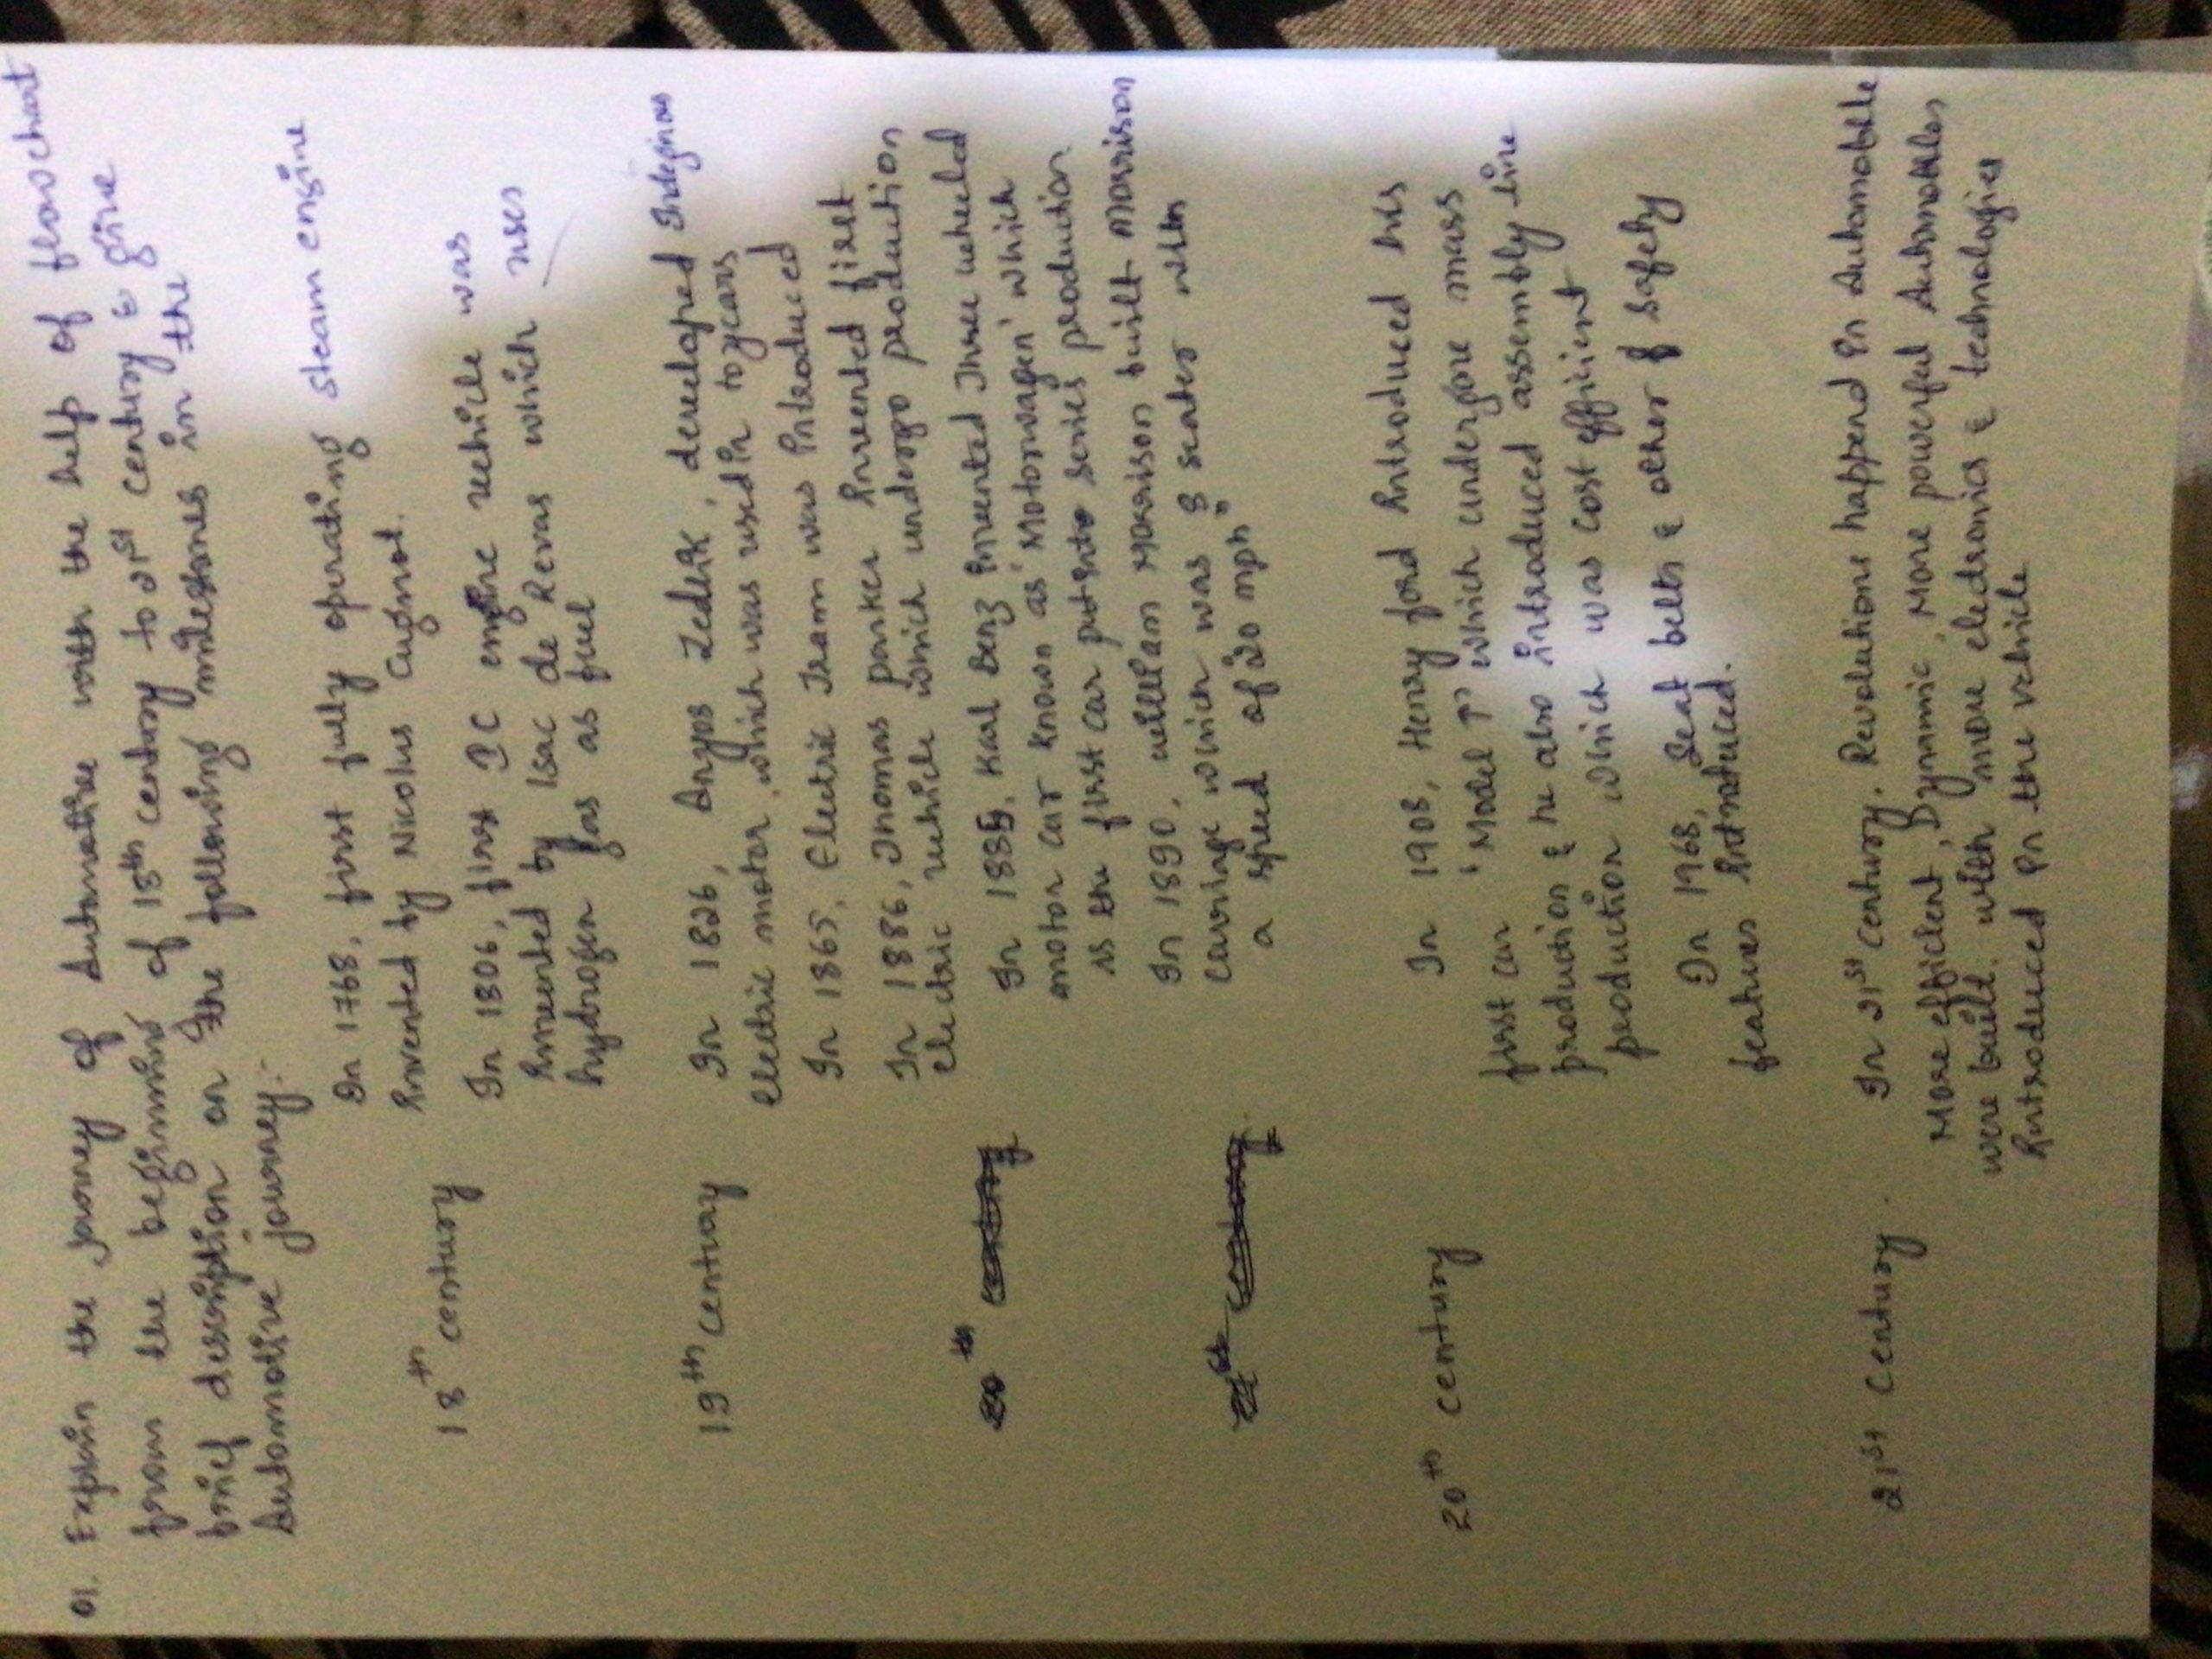 01. Explain the journey of Automotive with the help of flowchart
from the beginning of 18th century to 21st century & give
brief description on the following milestones in the
Automotive journey:-
In 1768, first fully operating steam engine
18th century
invented by Nicolus Cugnot.
In 1806, first IC engine vehicle was
invented by Isac de Revas which uses
hydrogen gas as fuel
19th century
In 1826, Anyos Jedlik, developed Indeginous
electric motor, which was used in toycars
In 1865, Electric Tram was introduced
In 1886, Thomas parker invented first
electric vehicle which undergo production
20th century
In 1885, Karl Benz invented Three wheeled
motor car known as 'Motorwagen' which
is the first car put into series production
In 1890, william Morrison built Morrison
century
carriage which was 8 seater with
a speed of 20 mph"
In 1908, Henry ford introduced his
20th century
first car 'Model T' which undergone mass
production & he also introduced assembly line
production which was cost efficient
In 1968, Seat belts & other & safety
features introduced.
21st Century.
In 21st century. Revolutions happend in Automobile
More efficient, Dynamic, More powerful Automobiles
were built. with more electronics & technologies
introduced in the vehicle